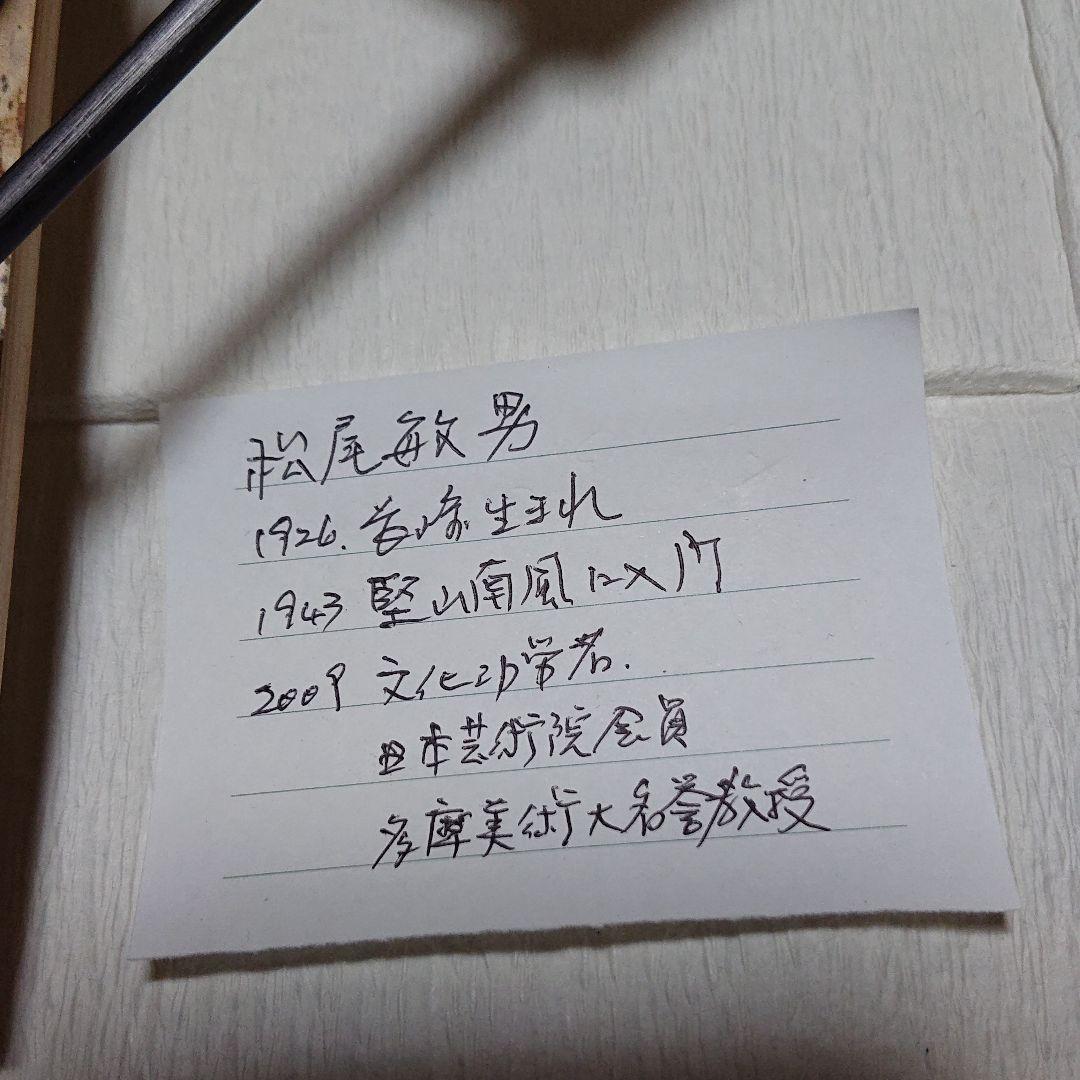 松尾敏男
1926. 長崎生まれ
1943 堅山南風に入門
2009 文化功労者.
日本芸術院会員
多摩美術大名誉教授